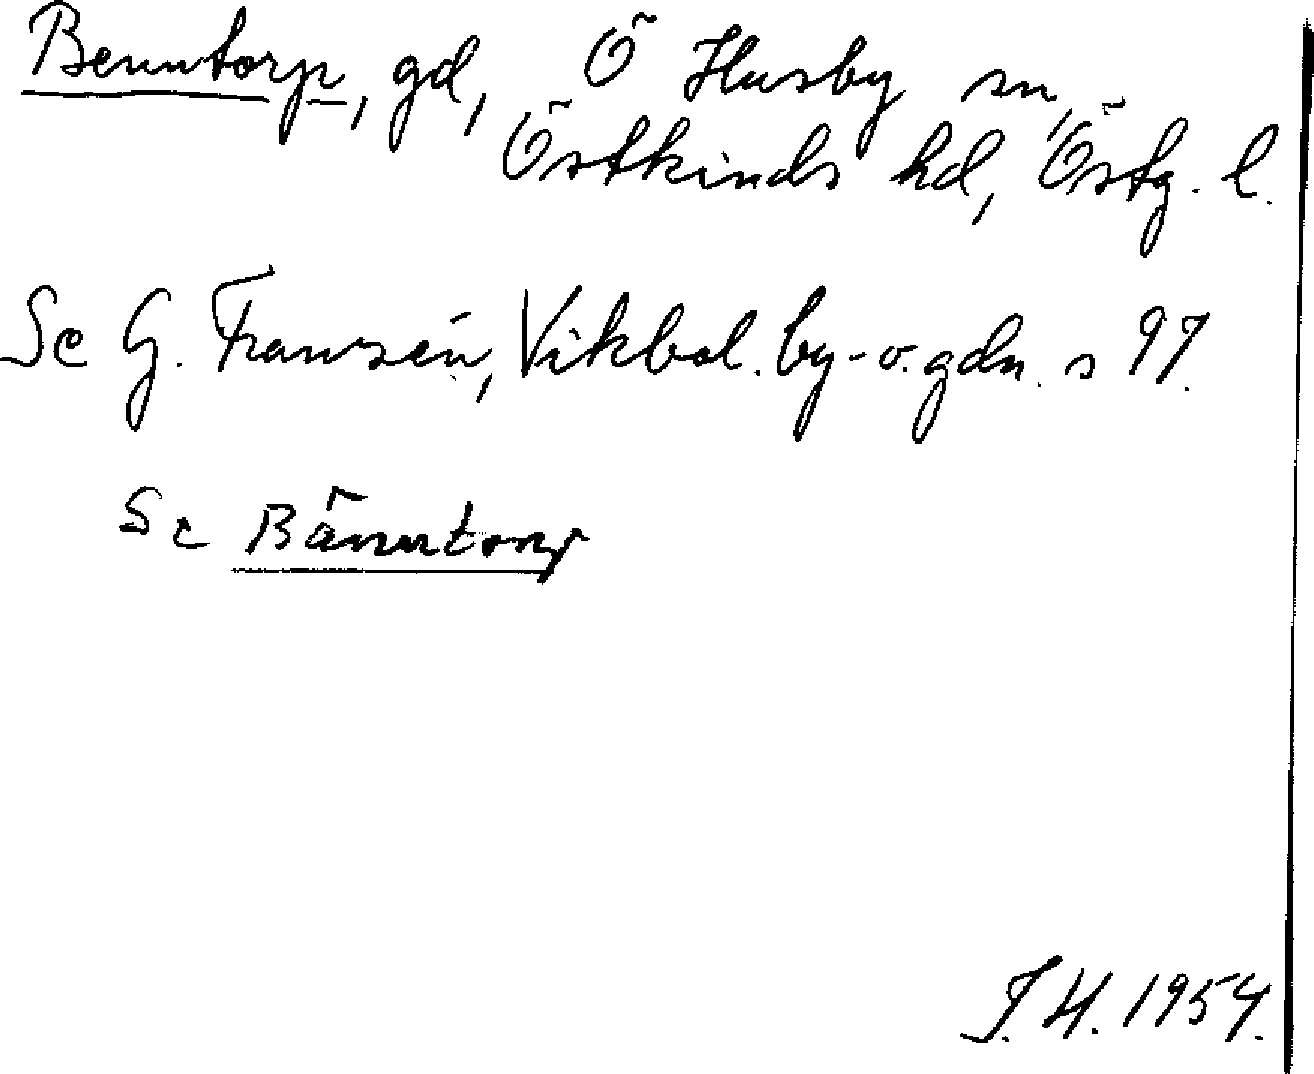 Benntorp, gd, Ö Husby sn,
Östkinds hd, Östg. l.
Se G. Franzén, Vikbol. by- o. gdn. s 97.
Se Bänntorp
J. H. 1954.